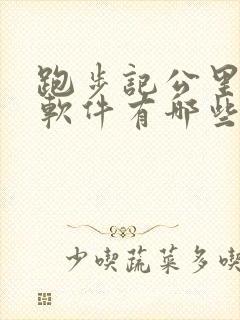 跑步記公里
軟件有哪些
少喫蔬菜多喫